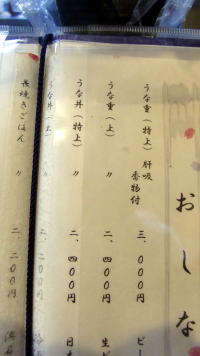 おしな
うな重（特上）肝吸 香物付 三、〇〇〇円
うな重（上） 〃 二、四〇〇円
うな丼（特上） 〃 二、四〇〇円
うな丼（上） 〃 二、二〇〇円
長焼きごはん 〃 二、二〇〇円
ビー
生ビ
日本